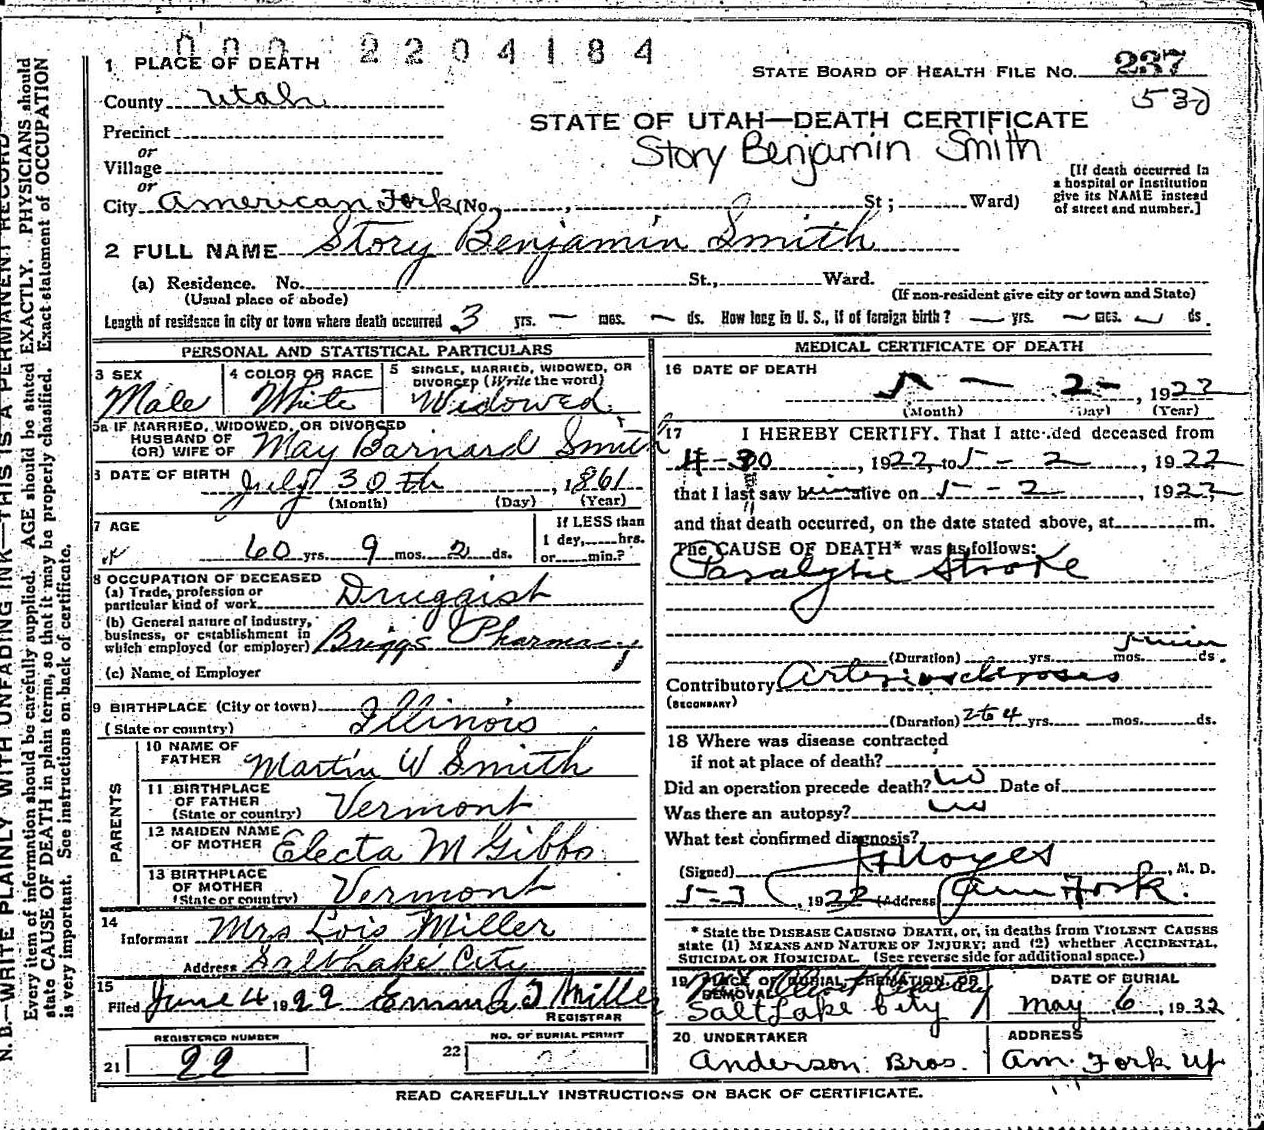 000 2204184
1 PLACE OF DEATH
STATE BOARD OF HEALTH FILE No. 237
530
County Utah
STATE OF UTAH—DEATH CERTIFICATE
Precinct
or
Story Benjamin Smith
Village
or
City American Fork (No. , St ; Ward)
[If death occurred in
a hospital or institution
give its NAME instead
of street and number.]
2 FULL NAME Story Benjamin Smith
(a) Residence. No. St., Ward.
(Usual place of abode) (If non-resident give city or town and State)
Length of residence in city or town where death occurred 3 yrs. — mos. — ds. How long in U. S., if of foreign birth? — yrs. — mos. — ds
PERSONAL AND STATISTICAL PARTICULARS
3 SEX
Male
4 COLOR OR RACE
White
5 SINGLE, MARRIED, WIDOWED, OR
DIVORCED (Write the word)
Widowed
5a IF MARRIED, WIDOWED, OR DIVORCED
HUSBAND OF
(OR) WIFE OF May Barnard Smith
6 DATE OF BIRTH July 30th, 1861
(Month) (Day) (Year)
7 AGE
60 yrs. 9 mos. 2 ds.
If LESS than
1 day, hrs.
or min.?
8 OCCUPATION OF DECEASED
(a) Trade, profession or
particular kind of work Druggist
(b) General nature of industry,
business, or establishment in
which employed (or employer) Briggs Pharmacy
(c) Name of Employer
9 BIRTHPLACE (City or town)
(State or country) Illinois
PARENTS
10 NAME OF
FATHER Martin W Smith
11 BIRTHPLACE
OF FATHER
(State or country) Vermont
12 MAIDEN NAME
OF MOTHER Electa M Gibbs
13 BIRTHPLACE
OF MOTHER
(State or country) Vermont
14
Informant Mrs Lois Miller
Address Salt Lake City
15
Filed June 4 1922 Emma J Miller
REGISTRAR
REGISTERED NUMBER
21 22
NO. OF BURIAL PERMIT
22
MEDICAL CERTIFICATE OF DEATH
16 DATE OF DEATH
5 — 2 — , 1922
(Month) (Day) (Year)
17 I HEREBY CERTIFY. That I attended deceased from
4-30, 1922, to 5 - 2, 1922
that I last saw him alive on 5 - 2, 1922,
and that death occurred, on the date stated above, at m.
The CAUSE OF DEATH* was as follows:
Paralytic Stroke
(Duration) yrs. mos. ds.
Contributory Arteriosclerosis
(SECONDARY)
(Duration) 2 to 4 yrs. mos. ds.
18 Where was disease contracted
if not at place of death?
Did an operation precede death? no Date of
Was there an autopsy? no
What test confirmed diagnosis?
(Signed) Noyes, M. D.
5-3, 1922 (Address) Am Fork.
* State the DISEASE CAUSING DEATH, or, in deaths from VIOLENT CAUSES
state (1) MEANS AND NATURE OF INJURY; and (2) whether ACCIDENTAL,
SUICIDAL OR HOMICIDAL. (See reverse side for additional space.)
19 PLACE OF BURIAL, CREMATION OR
REMOVAL
Salt Lake City
DATE OF BURIAL
May 6, 1932
20 UNDERTAKER
Anderson Bros.
ADDRESS
Am. Fork Ut
READ CAREFULLY INSTRUCTIONS ON BACK OF CERTIFICATE.
N. B.—WRITE PLAINLY WITH UNFADING INK—THIS IS A PERMANENT RECORD
Every item of information should be carefully supplied. AGE should be stated EXACTLY. PHYSICIANS should
state CAUSE OF DEATH in plain terms, so that it may be properly classified. Exact statement of OCCUPATION
is very important. See instructions on back of certificate.